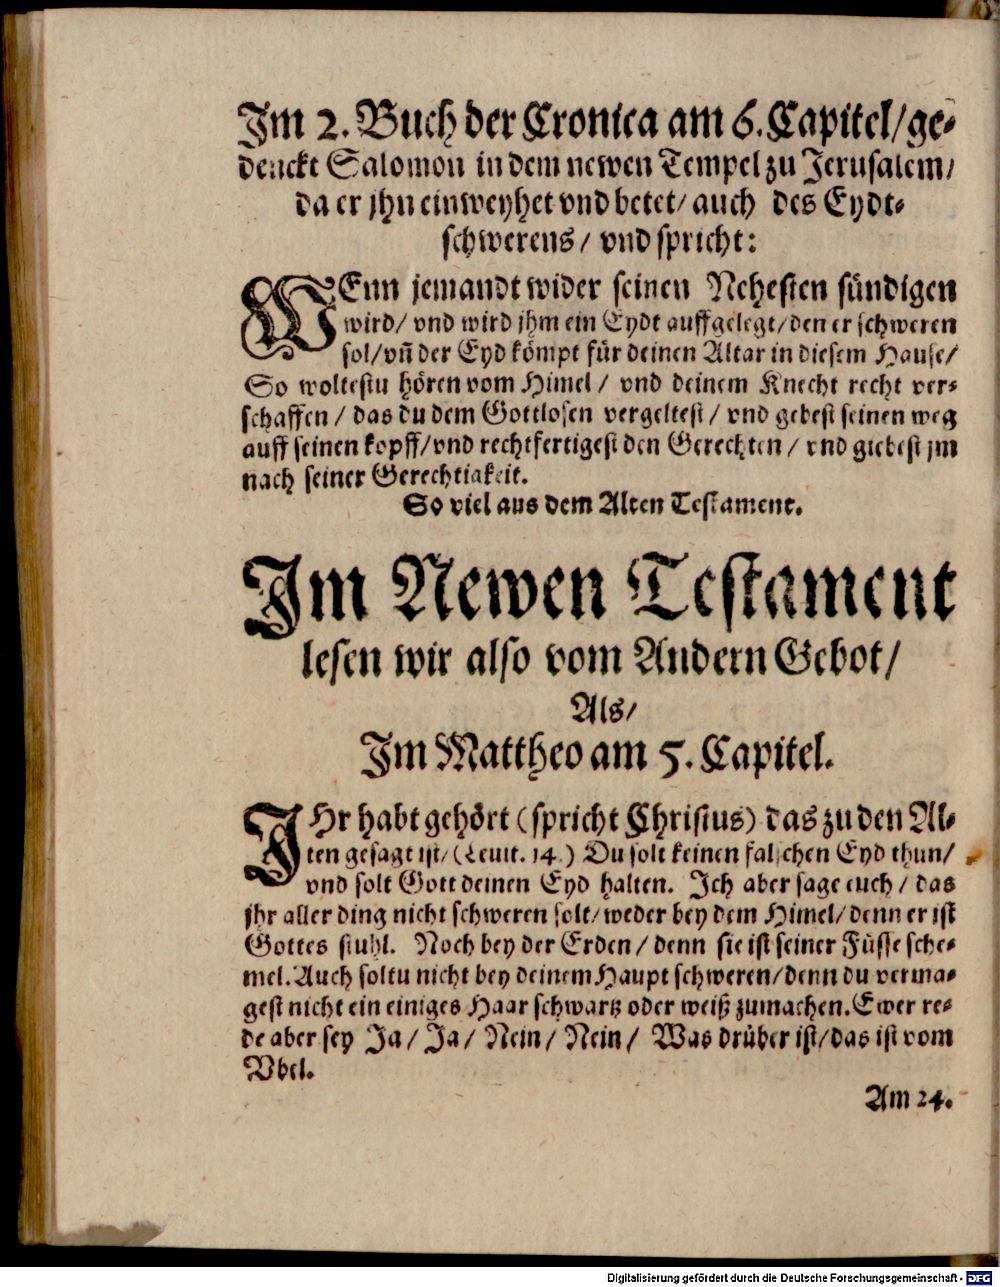 Im 2. Buch der Cronica am 6. Capitel/ ge-
denckt Salomon in dem newen Tempel zu Jerusalem/
da er jhn einweyhet vnd betet/ auch des Eydt-
schwerens/ vnd spricht:
WEnn jemandt wider seinen Nehesten sündigen
wird/ vnd wird jhm ein Eydt auffgelegt/ den er schweren
sol/ vñ der Eyd kömpt für deinen Altar in diesem Hause/
So woltestu hören vom Himel/ vnd deinem Knecht recht ver-
schaffen/ das du dem Gottlosen vergeltest/ vnd gebest seinen weg
auff seinen kopff/ vnd rechtfertigest den Gerechten/ vnd giebest jm
nach seiner Gerechtigkeit.
So viel aus dem Alten Testament.
Im Newen Testament
lesen wir also vom Andern Gebot/
Als/
Im Mattheo am 5. Capitel.
IHr habt gehört (spricht Christus) das zu den Al-
ten gesagt ist/ (Leuit. 14.) Du solt keinen falschen Eyd thun/
vnd solt Gott deinen Eyd halten. Ich aber sage euch/ das
jhr aller ding nicht schweren solt/ weder bey dem Himel/ denn er ist
Gottes stuhl. Noch bey der Erden/ denn sie ist seiner Füsse sche-
mel. Auch soltu nicht bey deinem Haupt schweren/ denn du verma-
gest nicht ein einiges Haar schwartz oder weiß zumachen. Ewer re-
de aber sey Ja/ Ja/ Nein/ Nein/ Was drüber ist/ das ist vom
Vbel.
Am 24.
Digitalisierung gefördert durch die Deutsche Forschungsgemeinschaft - DFG